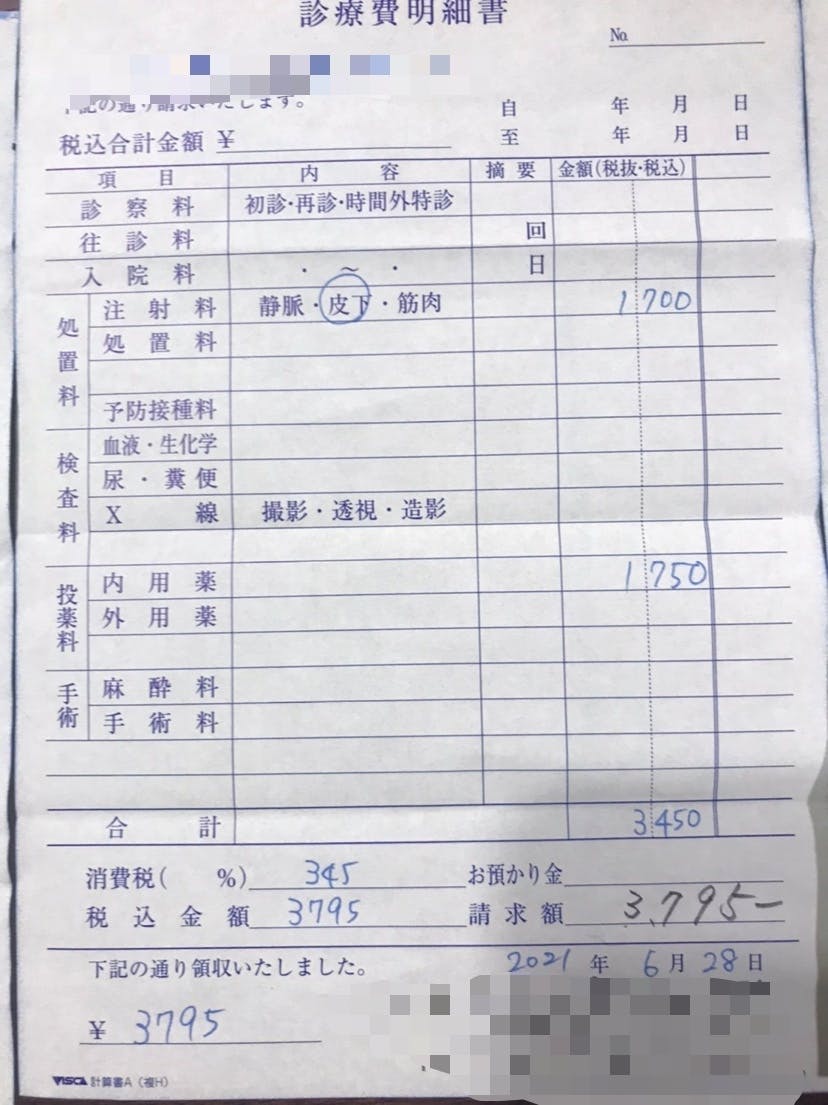 診療費明細書
No.
下記の通り請求いたします。
自 年 月 日
税込合計金額 ¥ 至 年 月 日
項 目 内 容 摘 要 金額(税抜・税込)
診 察 料 初診・再診・時間外特診
往 診 料 回
入 院 料 ・ ~ ・ 日
処置料
注 射 料 静脈・皮下・筋肉 1700
処 置 料
予防接種料
検査料
血液・生化学
尿・糞便
X 線 撮影・透視・造影
投薬料
内 用 薬 1750
外 用 薬
手術
麻 酔 料
手 術 料
合 計 3450
消費税( %) 345 お預かり金
税 込 金 額 3795 請 求 額 3,795-
下記の通り領収いたしました。 2021 年 6 月 28 日
¥ 3795
VISCA 計算書A(複H)